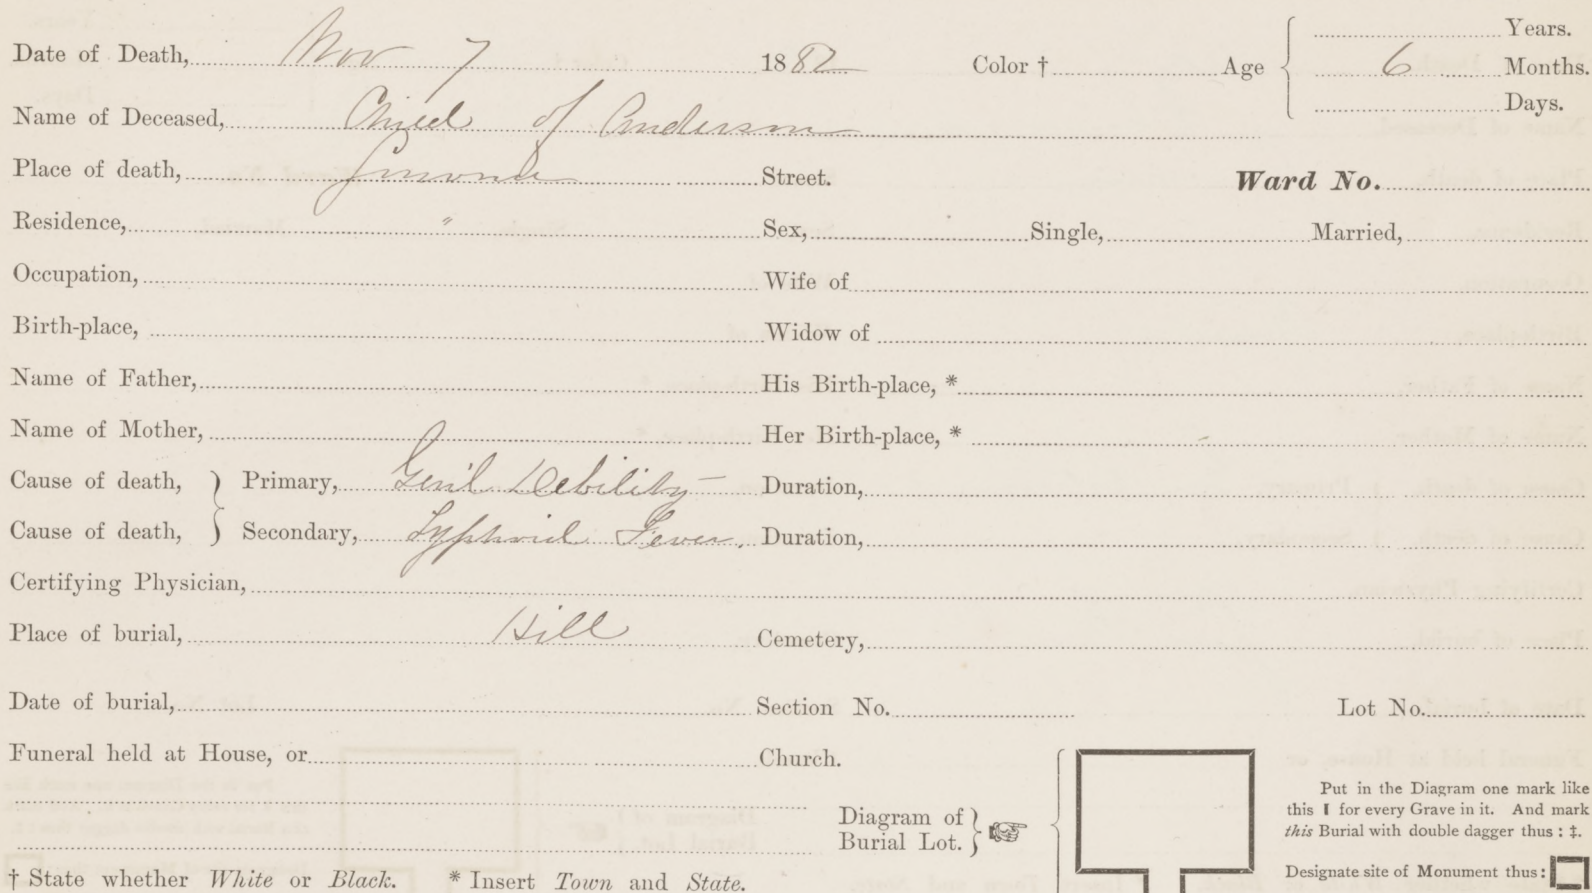 Date of Death, Nov 7 1882 Color † Age { Years.
6 Months.
Days.
Name of Deceased, Child of Anderson
Place of death, Street. Ward No.
Residence, " Sex, Single, Married,
Occupation, Wife of
Birth-place, Widow of
Name of Father, His Birth-place, *
Name of Mother, Her Birth-place, *
Cause of death, } Primary, Genl Debility Duration,
Cause of death, Secondary, Typhoid Fever. Duration,
Certifying Physician,
Place of burial, Hill Cemetery,
Date of burial, Section No. Lot No.
Funeral held at House, or Church.
Diagram of
Burial Lot. }
Put in the Diagram one mark like
this I for every Grave in it. And mark
this Burial with double dagger thus : ‡.
Designate site of Monument thus :
† State whether White or Black. * Insert Town and State.